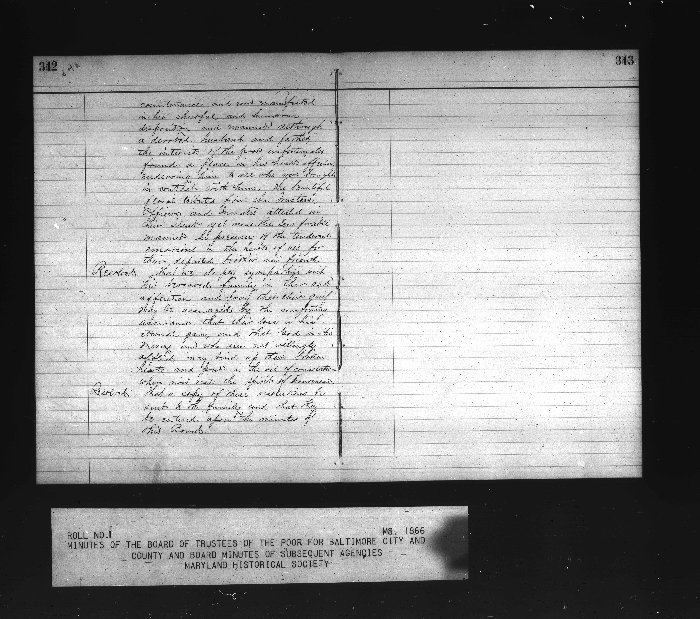 342
343
and manifested
in his cheerful and humorous
disposition and manner, although
a devoted husband and father
the interests of the poor unfortunates
found a place in his heart's affection
endearing him to all who were brought
in contact with him. The beautiful
floral tributes from the Trustees,
Officers and Inmates attested in
their silent yet
manner the presence of the tenderest
emotions in the hearts of all for
their departed brother and friend
Resolved That we deeply sympathise with
his bereaved family in their sad
affliction and
may be assuaged by the comforting
assurance that their loss is his
eternal gain, and that God in His
mercy and who does not willingly
afflict may bind up their broken
hearts and pour in the oil of consolation
when now rests the spirit of heaviness
Resolved That a copy of these resolutions be
sent to the family and that they
be entered upon the minutes of
this Board
ROLL NO. 1 MS. 1866
MINUTES OF THE BOARD OF TRUSTEES OF THE POOR FOR BALTIMORE CITY AND
COUNTY AND BOARD MINUTES OF SUBSEQUENT AGENCIES
MARYLAND HISTORICAL SOCIETY